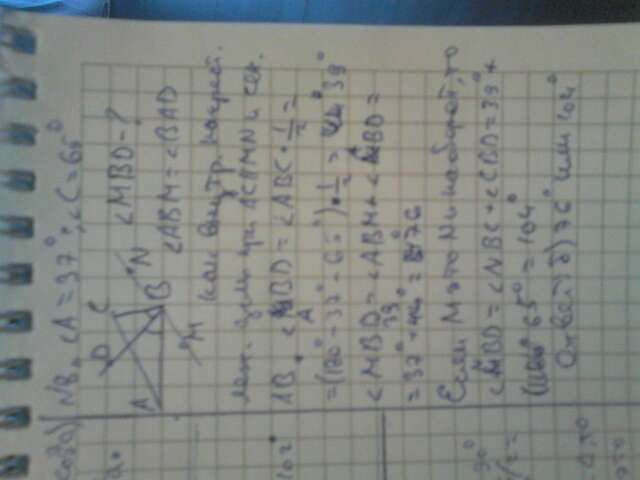 N8. ∠A = 37°; ∠C = 65°
D C
∠MBD - ?
A N
B
∠ABM = ∠BAD
M
как внутр. накрест.
леж. при AC ∥ MN и сек.
AB. ∠ABD = ∠ABC · 1/2 =
= (180° - 37° - 65°) · 1/2 = 39°
∠MBD = ∠ABM + ∠ABD =
= 37° + 39° = 76
Если M это N и наоборот, то
∠MBD = ∠NBC + ∠CBD = 39° +
65° = 104°
Ответ: б) 76° или 104°